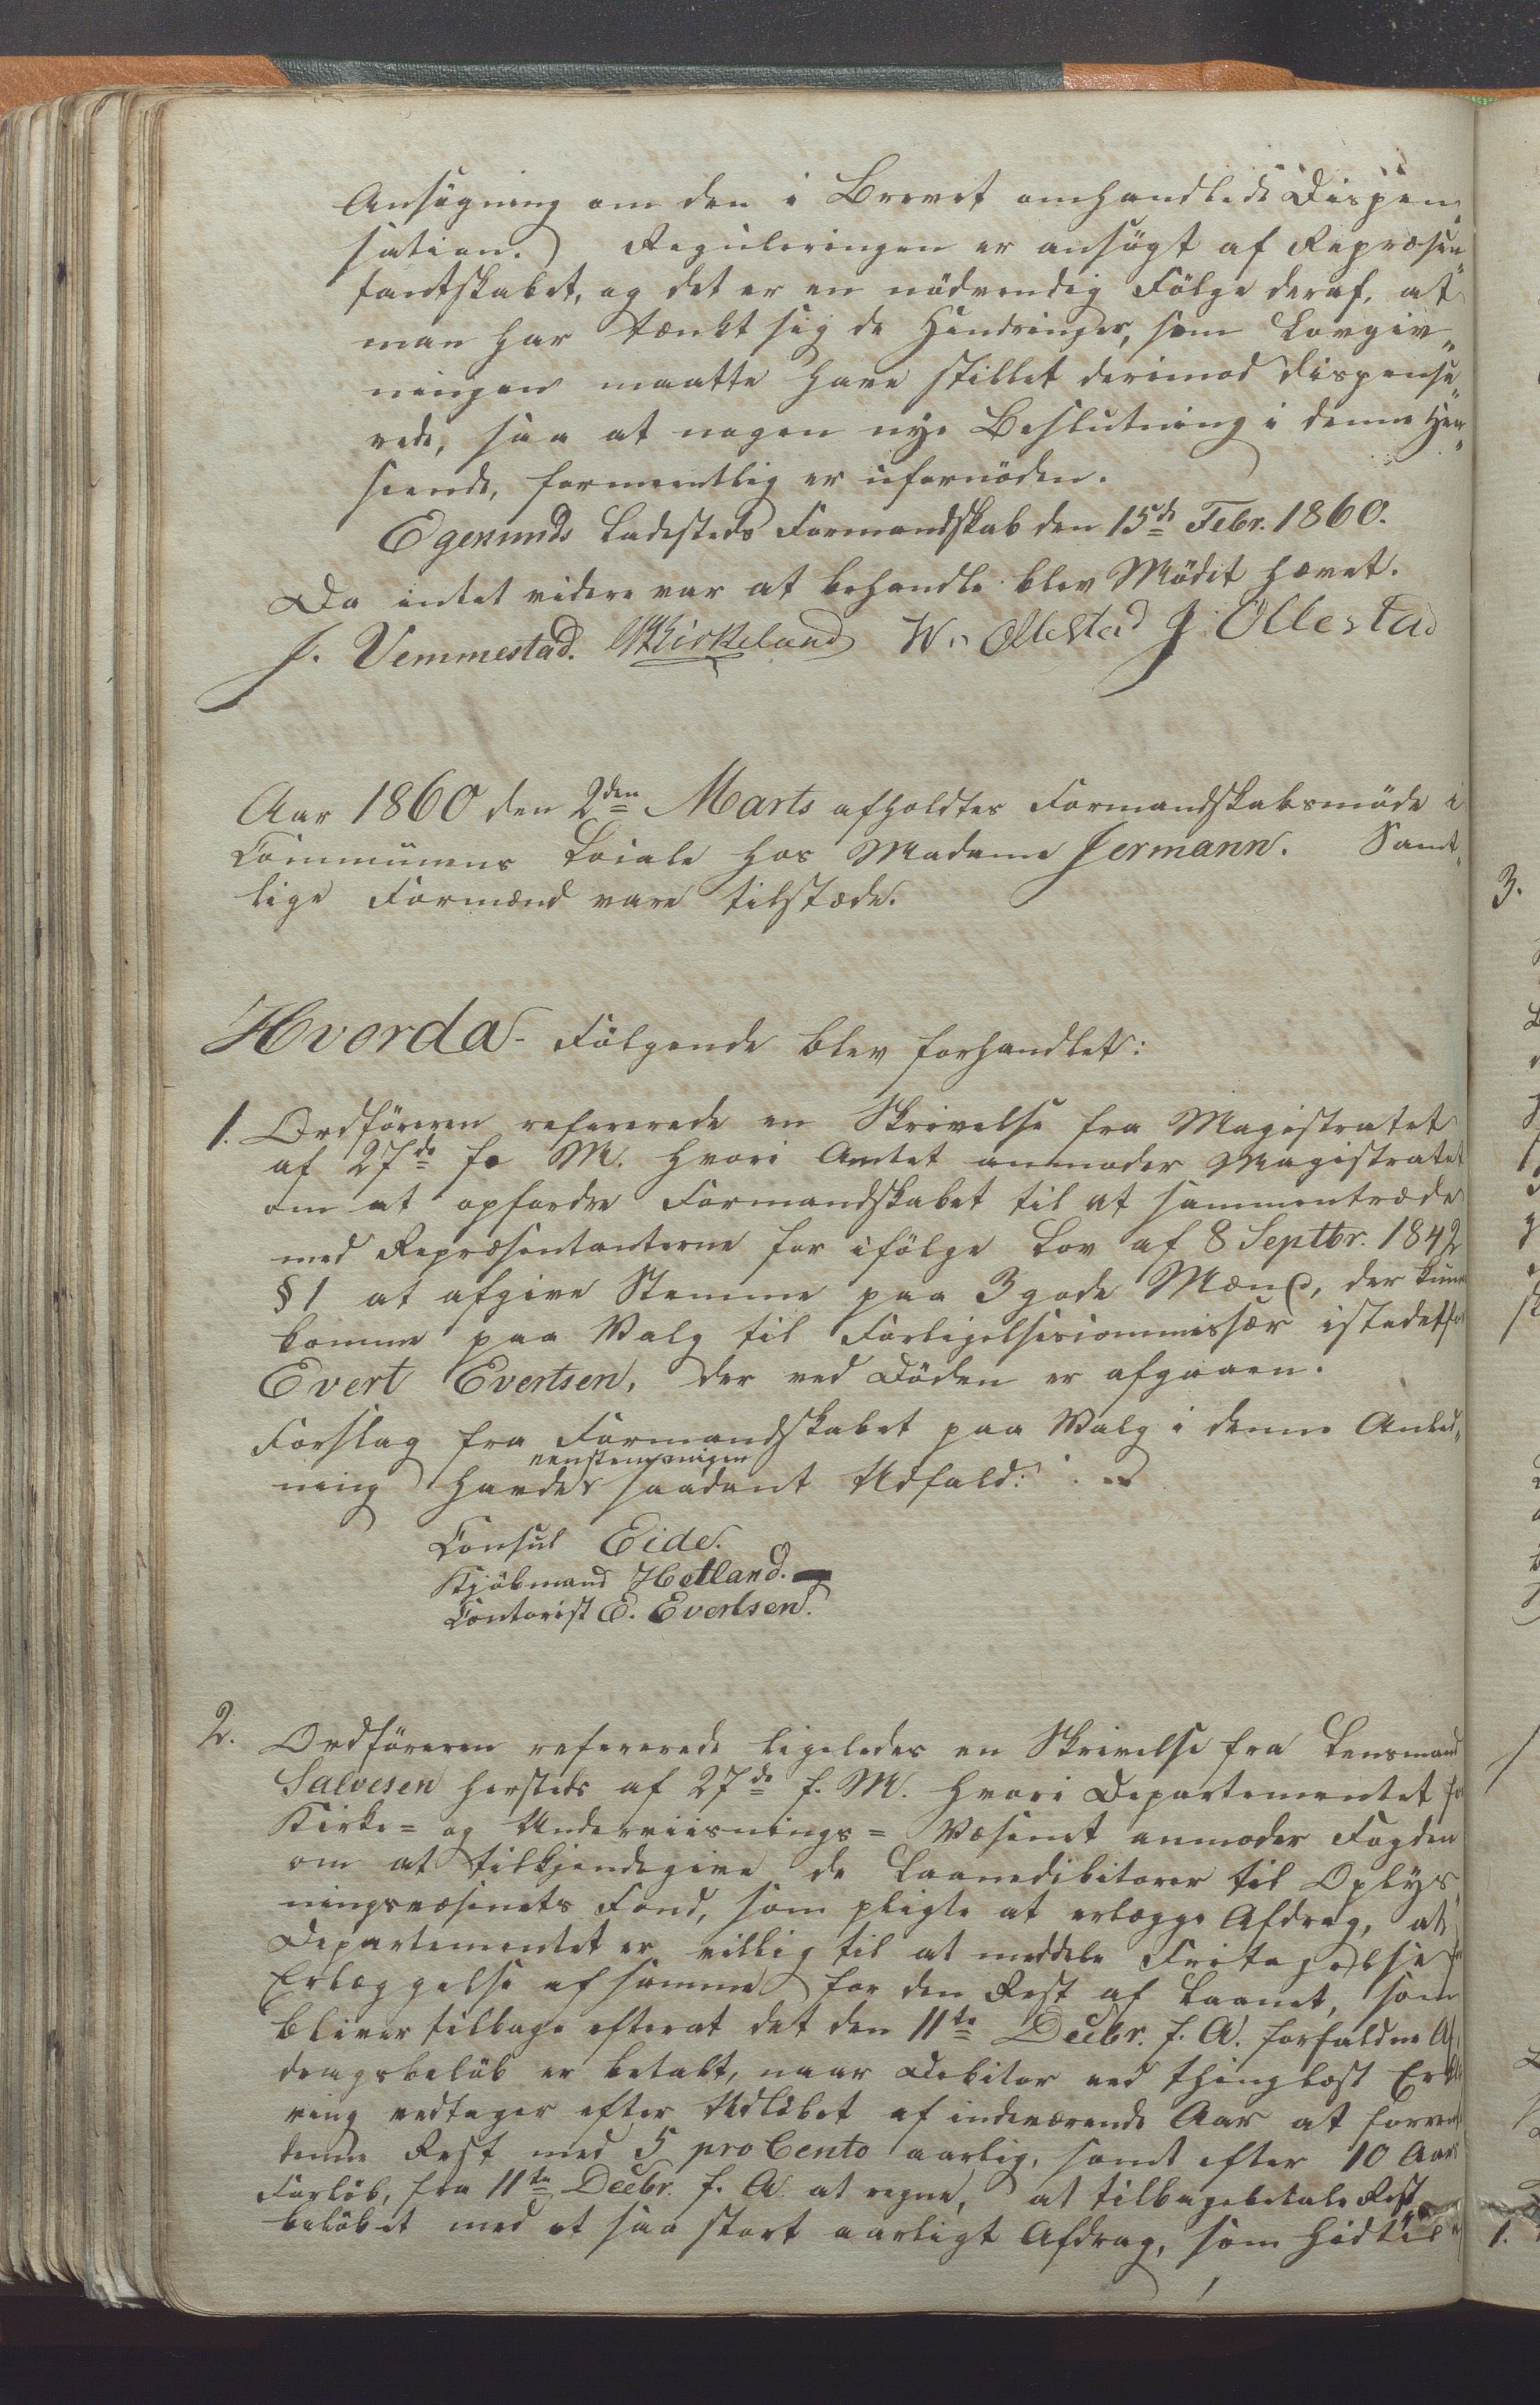 Ansögning om den i Brevet omhandlede Dispen„
sation. Reguleringen er ansögt af Repræsen„
tantskabet, og det er en nödvendig Fölge deraf, at
man har tænkt sig de Hindringer, som Lovgiv„
ningen maatte have stillet derimod dispense„
rede, saa at nogen nye Beslutning i denne Hen„
seende, formeentlig er ufornöden.
Egersunds Ladesteds Formandskab den 15de Febr. 1860.
Da intet videre var at behandle blev Mödet hævet.
J. Vemmestad. Kirkeland W. Ollestad J. Ollestad
Aar 1860 den 2den Marts afholdtes Formandskabsmöde i
Communens Locale hos Madame Jermann. Samt„
lige Formænd vare tilstæde.
Hvorda - Fölgende blev forhandlet:
1. Ordföreren refererede en Skrivelse fra Magistratet
af 27de f. M. hvori Amtet anmoder Magistratet
om at opfordre Formandskabet til at sammentræde
med Repræsentanterne for ifölge Lov af 8 Septbr. 1842
§ 1 at afgive Stemme paa 3 gode Mænd, der kunne
komme paa Valg til Forligelsescommissær istedetfor
Evert Evertsen, der ved Döden er afgaaen.
Forslag fra Formandskabet paa Valg i denne Anled„
eenstemmigen
ning havde saadant Udfald:
Consul Eide.
Kjöbmand Hetland.
Contorist E. Evertsen.
2. Ordföreren refererede ligeledes en Skrivelse fra Lensmand
Salvesen hersteds af 27de f. M. hvori Departementet for
Kirke= og Underviisnings= Væsenet anmoder Fogden
om at tilkjendegive de Laanedebitorer til Oplys„
ningsvæsenets Fond, som pligte at erlægge Afdrag, at
Departementet er villig til at meddele Fritagelse for
Erlæggelse af samme for den Rest af Laanet, som
bliver tilbage efterat det den 11te Decbr. f. A. forfaldne Af„
dragsbelöb er betalt, naar Debitor ved thinglæst Erklæ
ring vedtager efter Udlöbet af indeværende Aar at forrente
denne Rest med 5 pro Cento aarlig, samt efter 10 Aars
Forlöb, fra 11te Decbr. f. A. at regne, at tilbagebetale Rest„
belöbet med et saa stort aarligt Afdrag, som hidtil